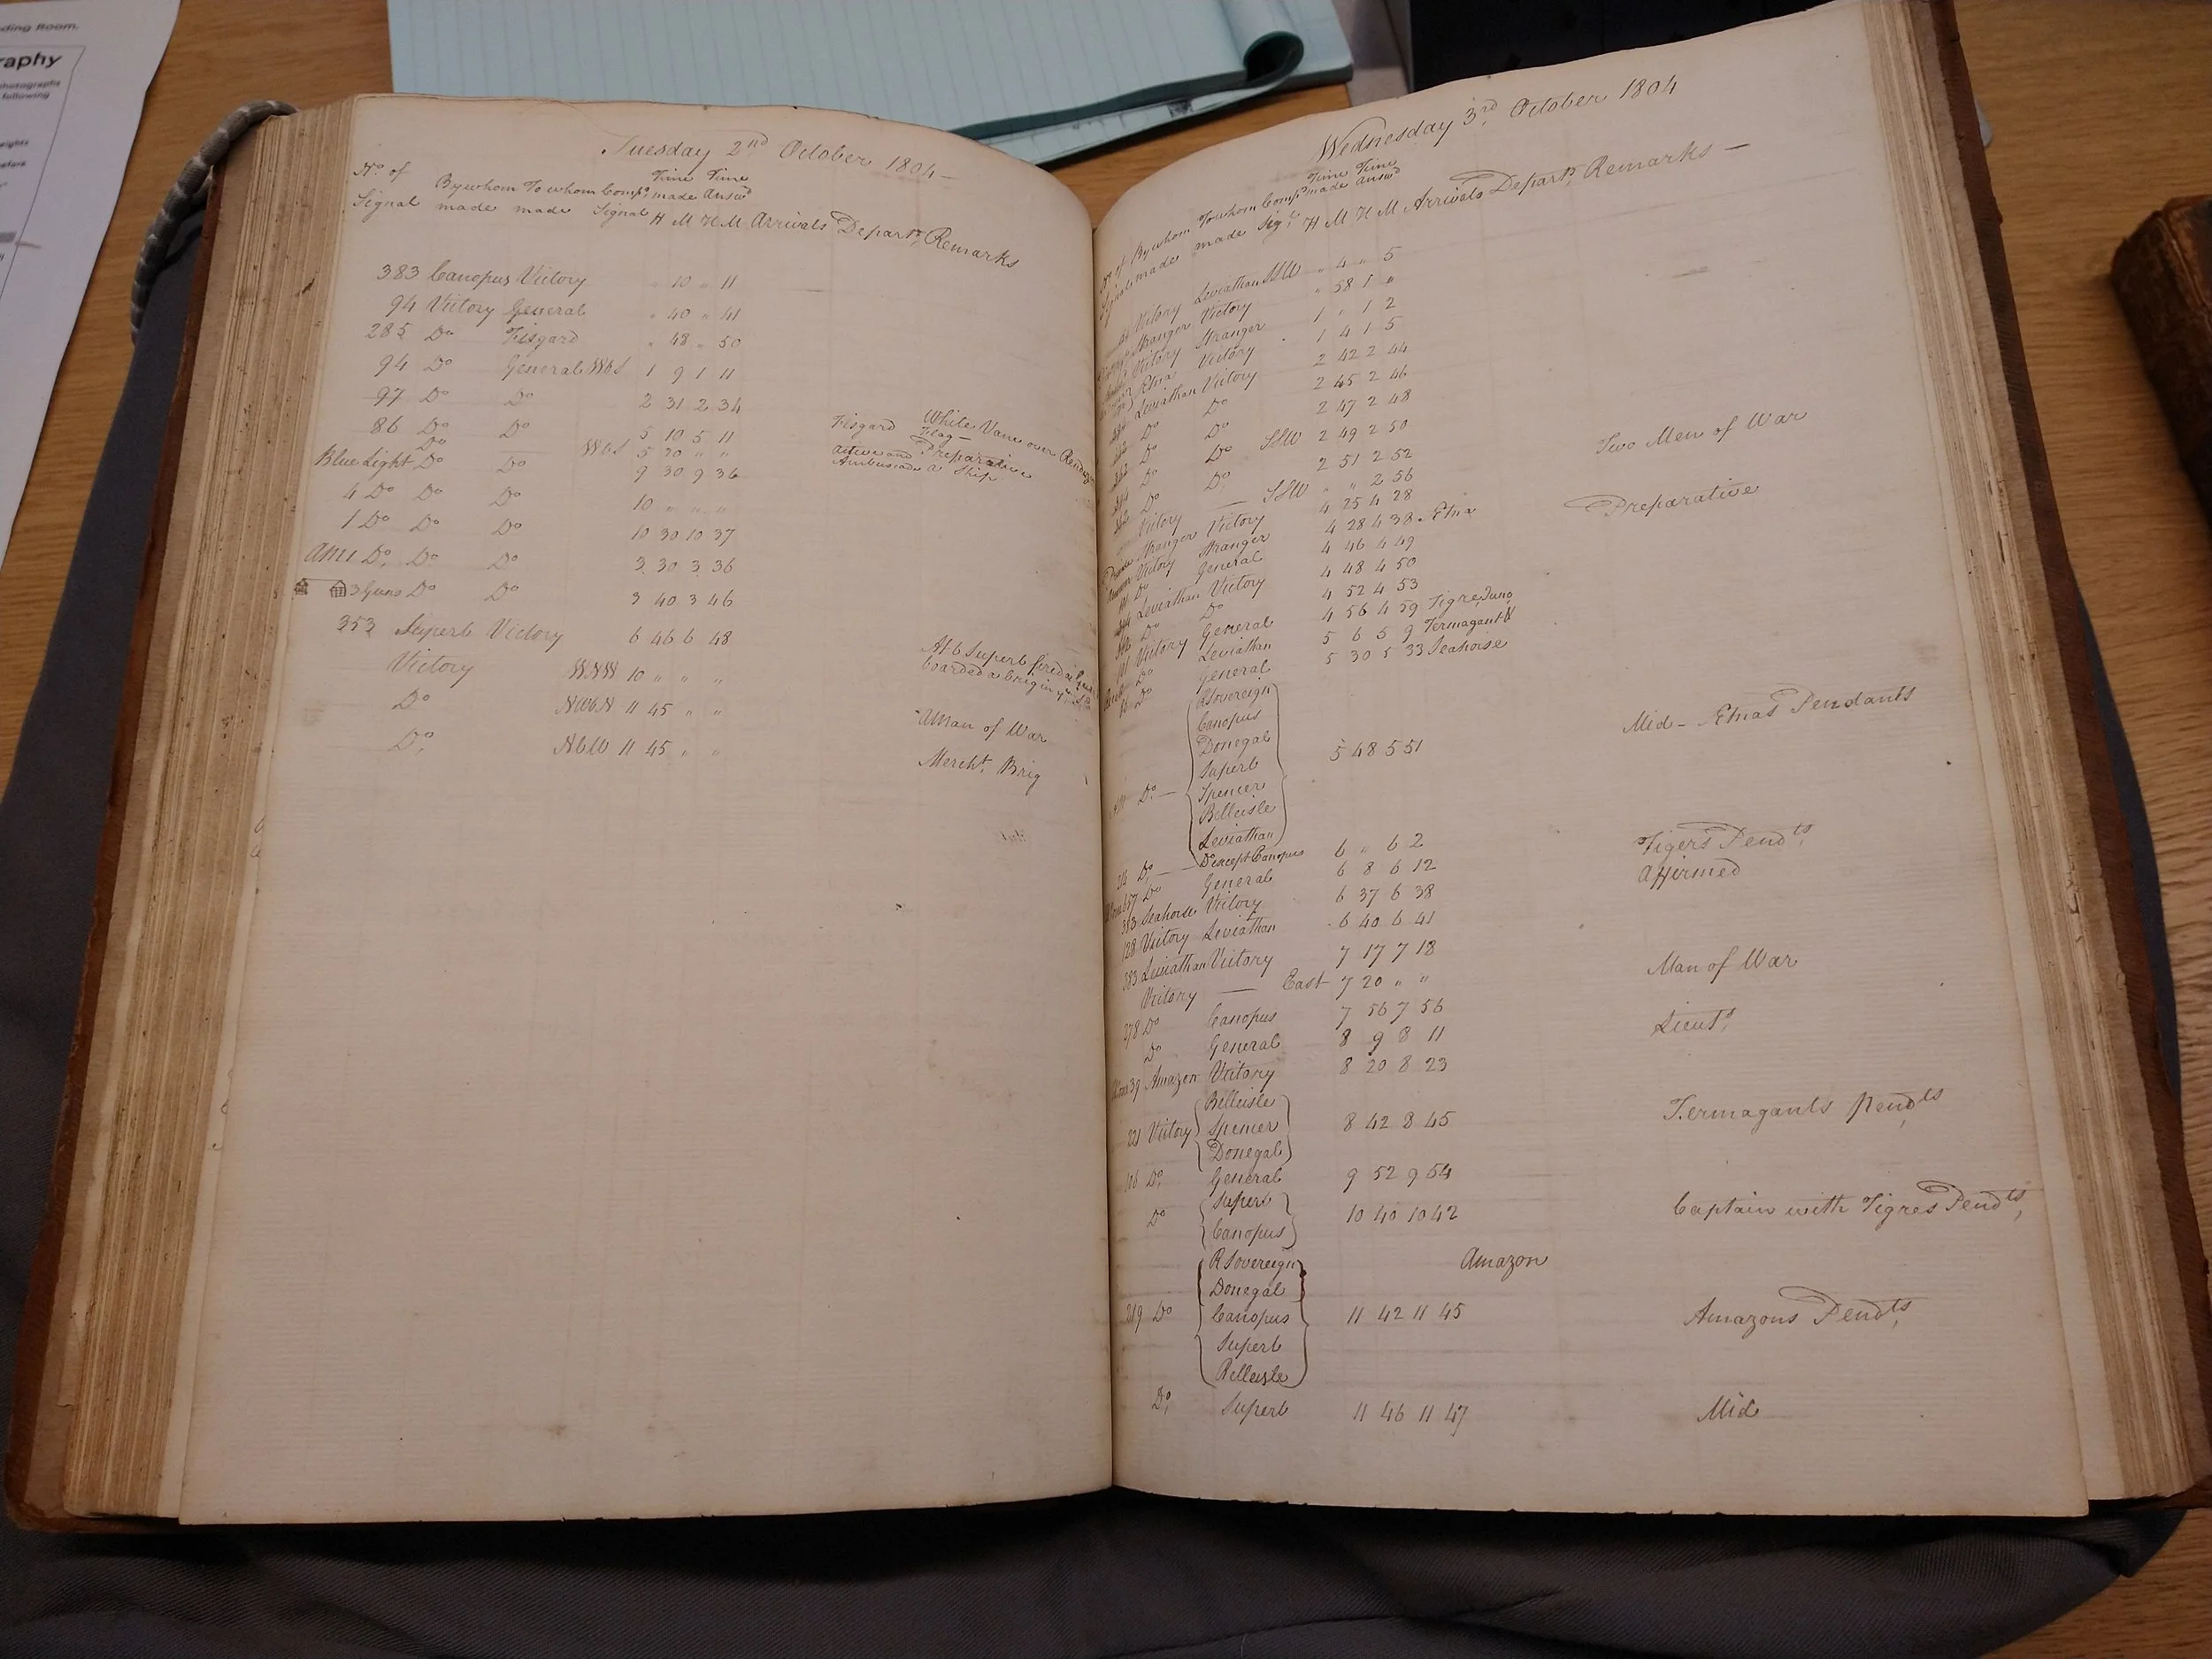 ding Room.
raphy
photographs
following
Tuesday 2nd October 1804
No of Signal By whom made To whom made Comps Signal Time made H M Time Answd H M Arrivals Departs, Remarks
383 Canopus Victory " 10 " 11
94 Victory General " 40 " 41
285 Do Fisgard " 48 " 50
94 Do General WbS 1 9 1 11
97 Do Do 2 31 2 34
86 Do Do 5 10 5 11 Fisgard White Vane over Flag
Do WbS 5 20 " " Active and Preparative
Blue Light Do Do 9 30 9 36 Ambuscade a Ship
4 Do Do Do 10 " " "
1 Do Do Do 10 30 10 37
AM 1 Do, Do Do 3 30 3 36
3 Guns Do Do 3 40 3 46
353 Superb Victory 6 46 6 48
Victory WNW 10 " " " At 6 Superb fired a
boarded a brig in
Do NWbN 11 45 " " A Man of War
Do, NbW 11 45 " " Mercht, Brig
Wednesday 3rd October 1804
No of Signal By whom made To whom made Comps Sigl Time made H M Time Answd H M Arrivals Departs, Remarks
Victory Leviathan SSW " 4 " 5
Stranger Victory " 58 1 "
Victory Stranger 1 " 1 2
Etna Victory 1 4 1 5
Leviathan Victory 2 42 2 44
Do Do 2 45 2 46
Do Do 2 47 2 48
Do Do SSW 2 49 2 50 Two Men of War
Do Do, 2 51 2 52
Victory — SSW " " 2 56
Stranger Victory 4 25 4 28 Preparative
Victory Stranger 4 28 4 38 Etna
Do General 4 46 4 49
Leviathan Victory 4 48 4 50
Do Do 4 52 4 53
Victory General 4 56 4 59 Tigre, Juno
Do Leviathan 5 6 5 9 Termagant &
Do General 5 30 5 33 Seahorse
R Sovereign
Canopus
Donegal
Do — Superb 5 48 5 51 Mid - Etnas Pendants
Spencer
Belleisle
Leviathan
Do, — Do except Canopus 6 " 6 2 Tigers Pendts,
Do General 6 8 6 12 Affirmed
383 Seahorse Victory 6 37 6 38
128 Victory Leviathan 6 40 6 41
383 Leviathan Victory 7 17 7 18
Victory — East 7 20 " " Man of War
278 Do Canopus 7 56 7 56
Do General 8 9 8 11 Lieuts,
39 Amazon Victory 8 20 8 23
Belleisle
221 Victory Spencer 8 42 8 45 Termagants Pendts
Donegal
116 Do, General 9 52 9 54
Do Superb
Canopus 10 40 10 42 Captain with Tigres Pendts,
R Sovereign Amazon
Donegal
219 Do Canopus 11 42 11 45 Amazons Pendts,
Superb
Belleisle
Do, Superb 11 46 11 47 Mid